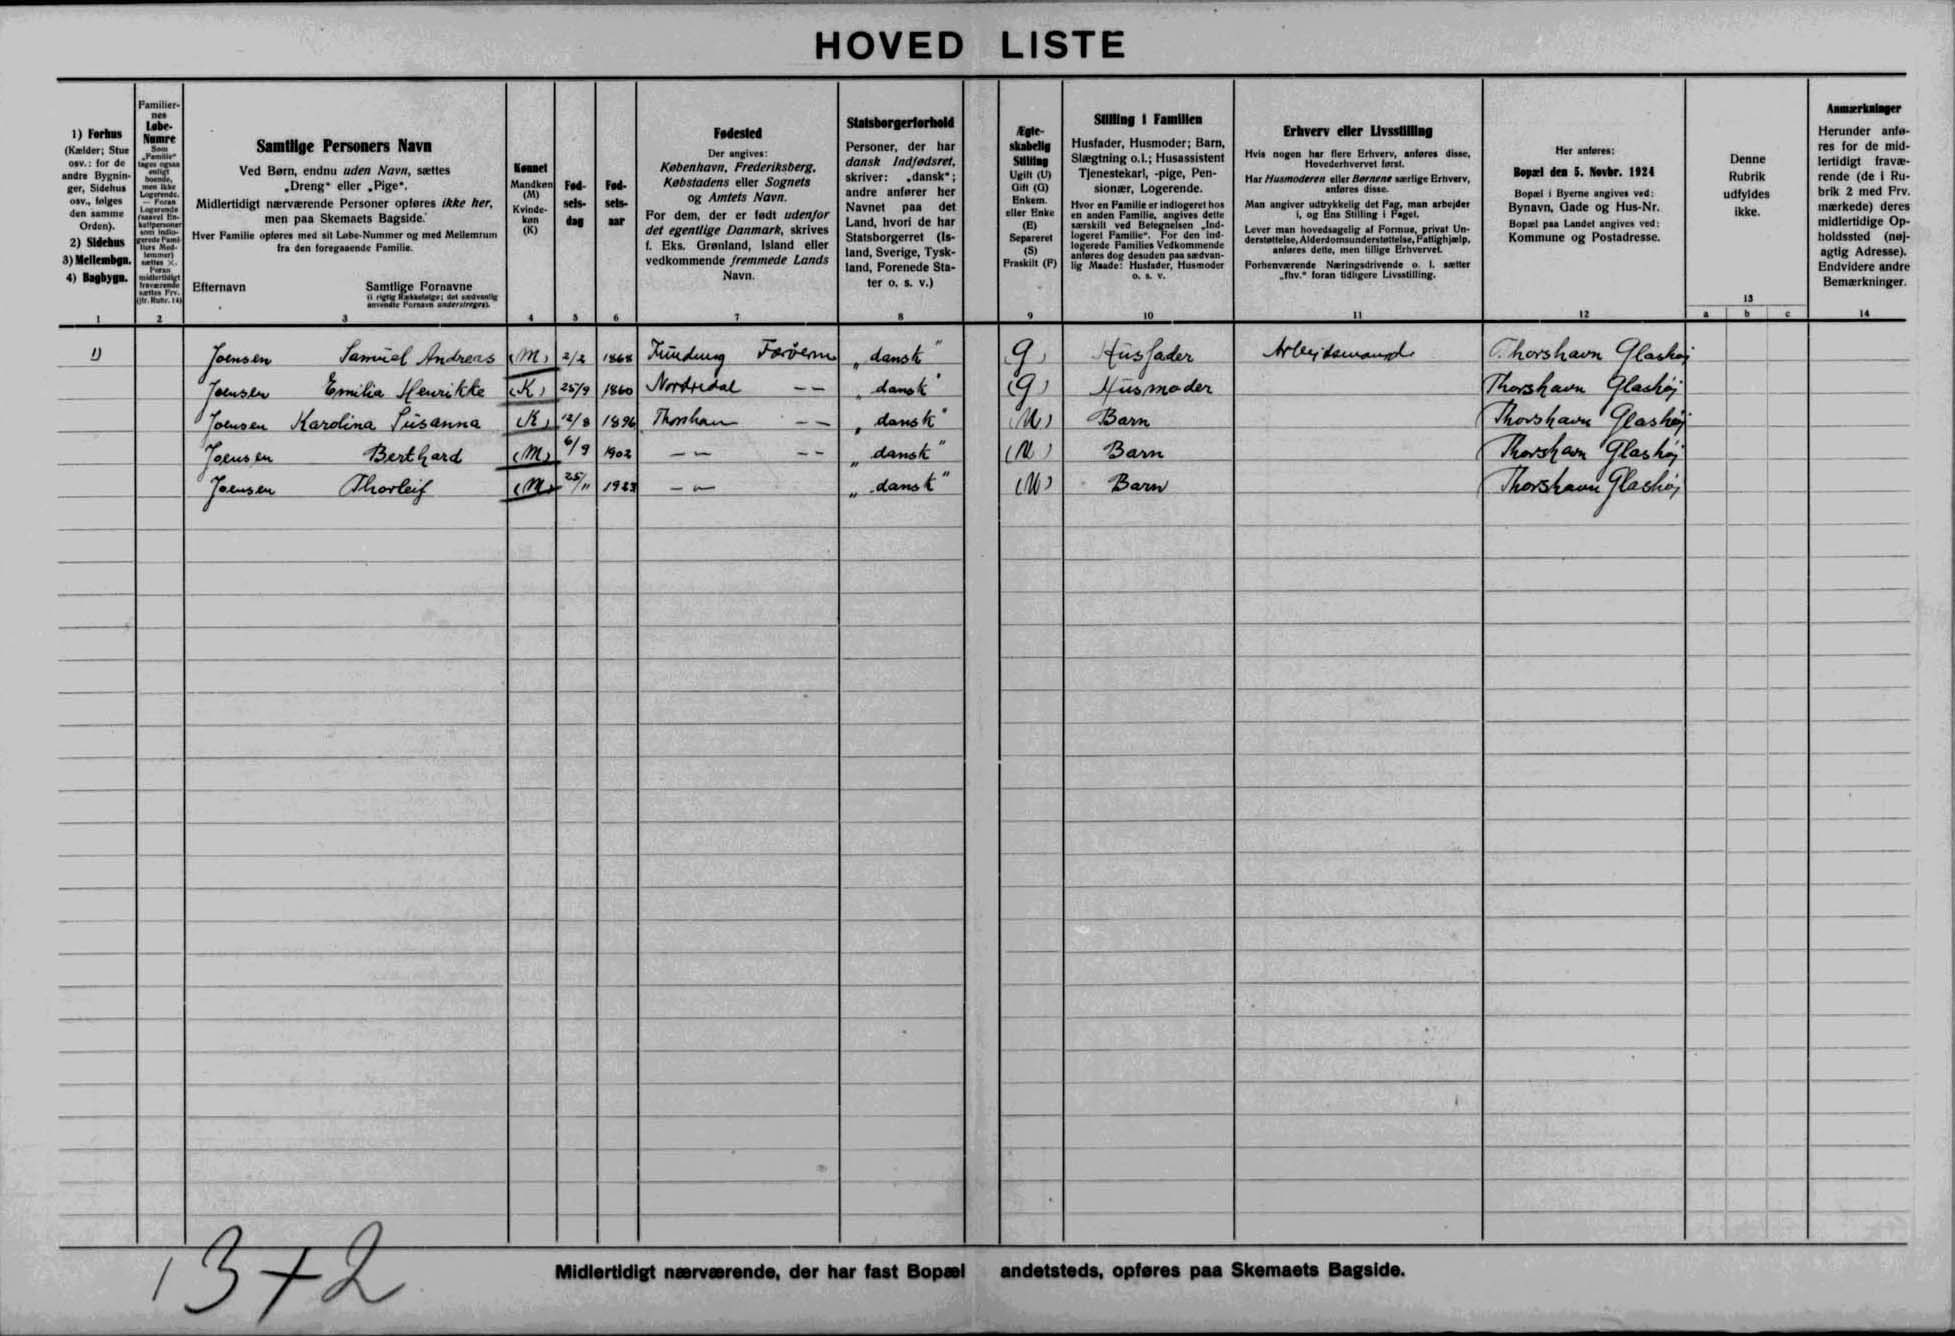 HOVED LISTE
1) Forhus
(Kælder; Stue
osv.: for de
andre Bygnin-
ger, Sidehus
osv., følges
den samme
Orden).
2) Sidehus
3) Mellembgn.
4) Bagbygn.
1
Familier-
nes
Løbe-
Numre
Som
„Familie“
tages ogsaa
enligt
boende,
men ikke
Logerende.
— Foran
Logerende
(saavel En-
keltpersoner
som indlo-
gerede Fami-
liers Med-
lemmer)
sættes ×.
Foran
midlertidigt
fraværende
sættes Frv.
(jfr. Rubr. 14)
2
Samtlige Personers Navn
Ved Børn, endnu uden Navn, sættes
„Dreng“ eller „Pige“.
Midlertidigt nærværende Personer opføres ikke her,
men paa Skemaets Bagside.
Hver Familie opføres med sit Løbe-Nummer og med Mellemrum
fra den foregaaende Familie.
Efternavn
Samtlige Fornavne
(i rigtig Rækkefølge; det sædvanlig
anvendte Fornavn understreges).
3
Kønnet
Mandkøn
(M)
Kvinde-
køn
(K)
4
Fød-
sels-
dag
5
Fød-
sels-
aar
6
Fødested
Der angives:
København, Frederiksberg,
Købstadens eller Sognets
og Amtets Navn.
For dem, der er født udenfor
det egentlige Danmark, skrives
f. Eks. Grønland, Island eller
vedkommende fremmede Lands
Navn.
7
Statsborgerforhold
Personer, der har
dansk Indfødsret,
skriver: „dansk“;
andre anfører her
Navnet paa det
Land, hvori de har
Statsborgerret (Is-
land, Sverige, Tysk-
land, Forenede Sta-
ter o. s. v.)
8
Ægte-
skabelig
Stilling
Ugift (U)
Gift (G)
Enkem.
eller Enke
(E)
Separeret
(S)
Fraskilt (F)
9
Stilling i Familien
Husfader, Husmoder; Barn,
Slægtning o.l.; Husassistent
Tjenestekarl, -pige, Pen-
sionær, Logerende.
Hvor en Familie er indlogeret hos
en anden Familie, angives dette
særskilt ved Betegnelsen „Ind-
logeret Familie“. For den ind-
logerede Families Vedkommende
anføres dog desuden paa sædvan-
lig Maade: Husfader, Husmoder
o. s. v.
10
Erhverv eller Livsstilling
Hvis nogen har flere Erhverv, anføres disse,
Hovederhvervet først.
Har Husmoderen eller Børnene særlige Erhverv,
anføres disse.
Man angiver udtrykkelig det Fag, man arbejder
i, og Ens Stilling i Faget.
Lever man hovedsagelig af Formue, privat Un-
derstøttelse, Alderdomsunderstøttelse, Fattighjælp,
anføres dette, men tillige Erhvervet.
Forhenværende Næringsdrivende o. l. sætter
„fhv.“ foran tidligere Livsstilling.
11
Her anføres:
Bopæl den 5. Novbr. 1924
Bopæl i Byerne angives ved:
Bynavn, Gade og Hus-Nr.
Bopæl paa Landet angives ved:
Kommune og Postadresse.
12
Denne
Rubrik
udfyldes
ikke.
13
a b c
Anmærkninger
Herunder anfø-
res for de mid-
lertidigt fravæ-
rende (de i Ru-
brik 2 med Frv.
mærkede) deres
midlertidige Op-
holdssted (nøj-
agtig Adresse).
Endvidere andre
Bemærkninger.
14
1) Joensen Samuel Andreas (M) 2/2 1868 Færøerne „dansk“ G Husfader Arbejdsmand Thorshavn Glashøj
Joensen Emilia Henrikke (K) 25/9 1860 Nordredal — — „dansk“ (G) Husmoder Thorshavn Glashøj
Joensen Karolina Susanna (K) 12/8 1896 Thorshavn — — „dansk“ (U) Barn Thorshavn Glashøj
Joensen Berthard (M) 6/9 1902 — — — — „dansk“ (U) Barn Thorshavn Glashøj
Joensen Thorleif (M) 25/11 — — „dansk“ (U) Barn Thorshavn Glashøj
3+2
Midlertidigt nærværende, der har fast Bopæl andetsteds, opføres paa Skemaets Bagside.